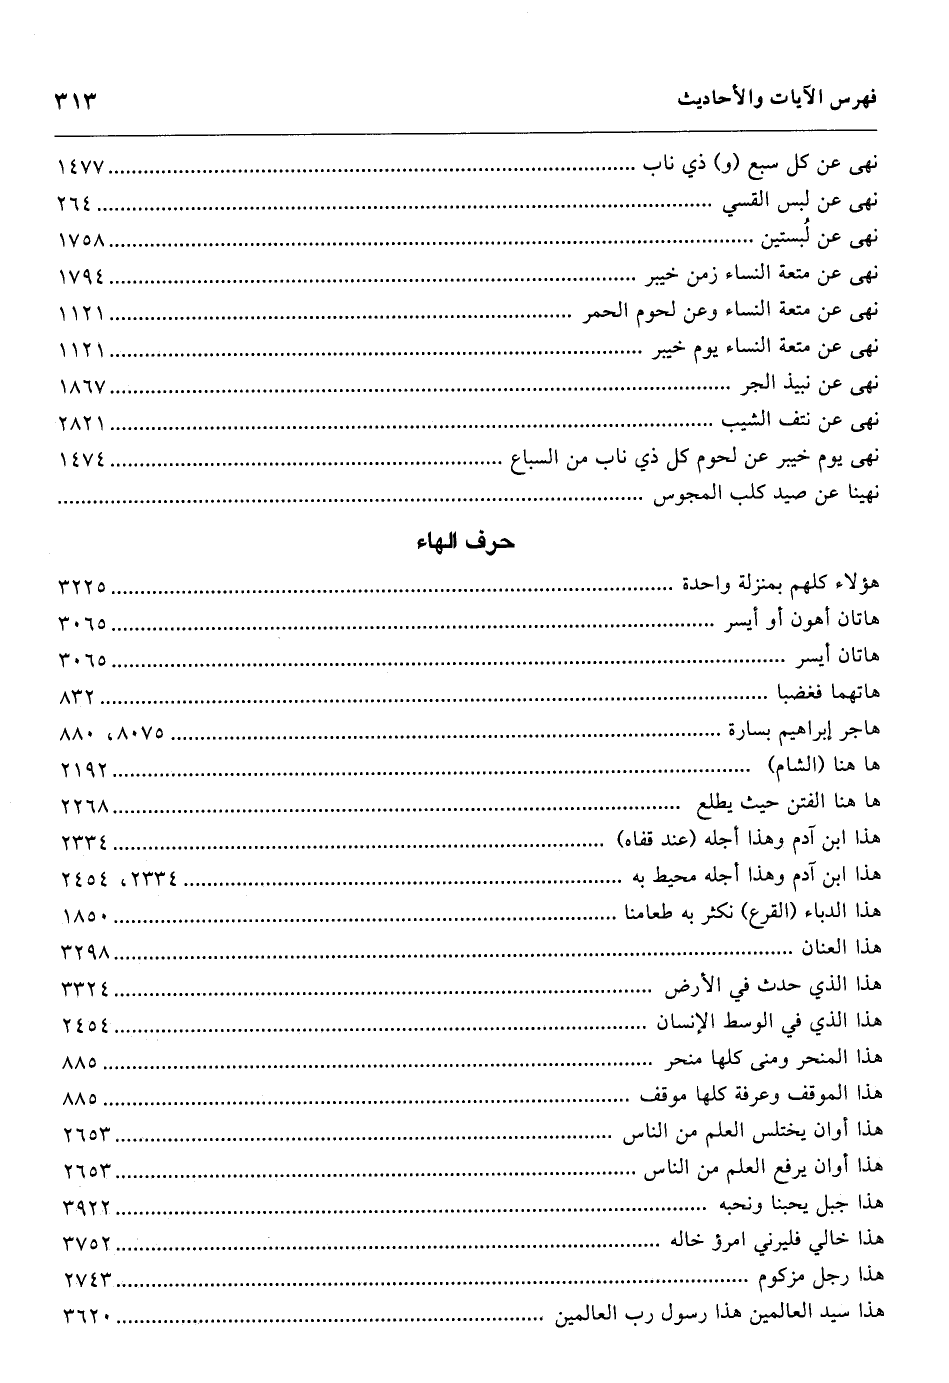 فهرس الآيات والأحاديث ٣١٣
نهى عن كل سبع (و) ذي ناب ........ ١٤٧٧
نهى عن لبس القسي ........ ٢٦٤
نهى عن لُبستين ........ ١٧٥٨
نهى عن متعة النساء زمن خيبر ........ ١٧٩٤
نهى عن متعة النساء وعن لحوم الحمر ........ ١١٢١
نهى عن متعة النساء يوم خيبر ........ ١١٢١
نهى عن نبيذ الجر ........ ١٨٦٧
نهى عن نتف الشيب ........ ٢٨٢١
نهى يوم خيبر عن لحوم كل ذي ناب من السباع ........ ١٤٧٤
نهينا عن صيد كلب المجوس ........
حرف الهاء
هؤلاء كلهم بمنزلة واحدة ........ ٣٢٢٥
هاتان أهون أو أيسر ........ ٣٠٦٥
هاتان أيسر ........ ٣٠٦٥
هاتهما فغضبا ........ ٨٣٢
هاجر إبراهيم بسارة ........ ٨٠٧٥، ٨٨٠
ها هنا (الشام) ........ ٢١٩٢
ها هنا الفتن حيث يطلع ........ ٢٢٦٨
هذا ابن آدم وهذا أجله (عند قفاه) ........ ٢٣٣٤
هذا ابن آدم وهذا أجله محيط به ........ ٢٣٣٤، ٢٤٥٤
هذا الدباء (القرع) نكثر به طعامنا ........ ١٨٥٠
هذا العنان ........ ٣٢٩٨
هذا الذي حدث في الأرض ........ ٣٣٢٤
هذا الذي في الوسط الإنسان ........ ٢٤٥٤
هذا المنحر ومنى كلها منحر ........ ٨٨٥
هذا الموقف وعرفة كلها موقف ........ ٨٨٥
هذا أوان يختلس العلم من الناس ........ ٢٦٥٣
هذا أوان يرفع العلم من الناس ........ ٢٦٥٣
هذا جبل يحبنا ونحبه ........ ٣٩٢٢
هذا خالي فليرني امرؤ خاله ........ ٣٧٥٢
هذا رجل مزكوم ........ ٢٧٤٣
هذا سيد العالمين هذا رسول رب العالمين ........ ٣٦٢٠